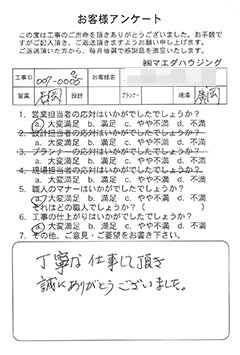 お客様アンケート
この度は工事のご用命を頂きありがとうございました。お手数で
すがご記入頂き、ご返送頂きますようお願い申し上げます。
ご返送頂いた方から、毎月抽選で感謝品を進呈いたします。
㈱マエダハウジング
工事ID 007-0005 お客様名
営業 設計 プランナー 現場
1. 営業担当者の応対はいかがでしたでしょうか?
a. 大変満足 b. 満足 c. やや不満 d. 不満
2. 設計担当者の応対はいかがでしたでしょうか?
a. 大変満足 b. 満足 c. やや不満 d. 不満
3. プランナーの応対はいかがでしたでしょうか?
a. 大変満足 b. 満足 c. やや不満 d. 不満
4. 現場担当者の応対はいかがでしたでしょうか?
a. 大変満足 b. 満足 c. やや不満 d. 不満
5. 職人のマナーはいかがでしたでしょうか?
a. 大変満足 b. 満足 c. やや不満 d. 不満
それはどの職人でしょうか?( )
6. 工事の仕上がりはいかがでしたでしょうか?
a. 大変満足 b. 満足 c. やや不満 d. 不満
7. その他、ご意見・ご要望をお書き下さい。
丁寧な仕事して頂き
誠にありがとうございました。